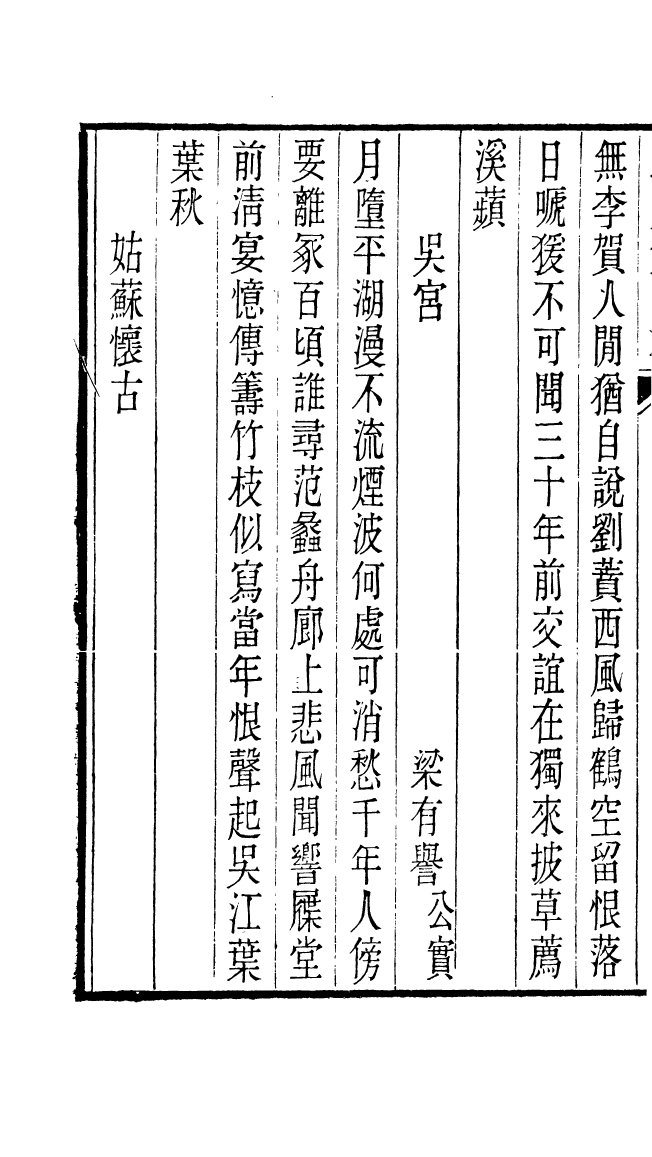 無李賀人閒猶自說劉蕡西風歸鶴空留恨落
日嗁猨不可聞三十年前交誼在獨來披草薦
溪蘋
吳宮　梁有譽公實
月墮平湖漫不流煙波何處可消愁千年人傍
要離冢百頃誰尋范蠡舟廊上悲風聞響屧堂
前淸宴憶傳籌竹枝似寫當年恨聲起吳江葉
葉秋
姑蘇懷古